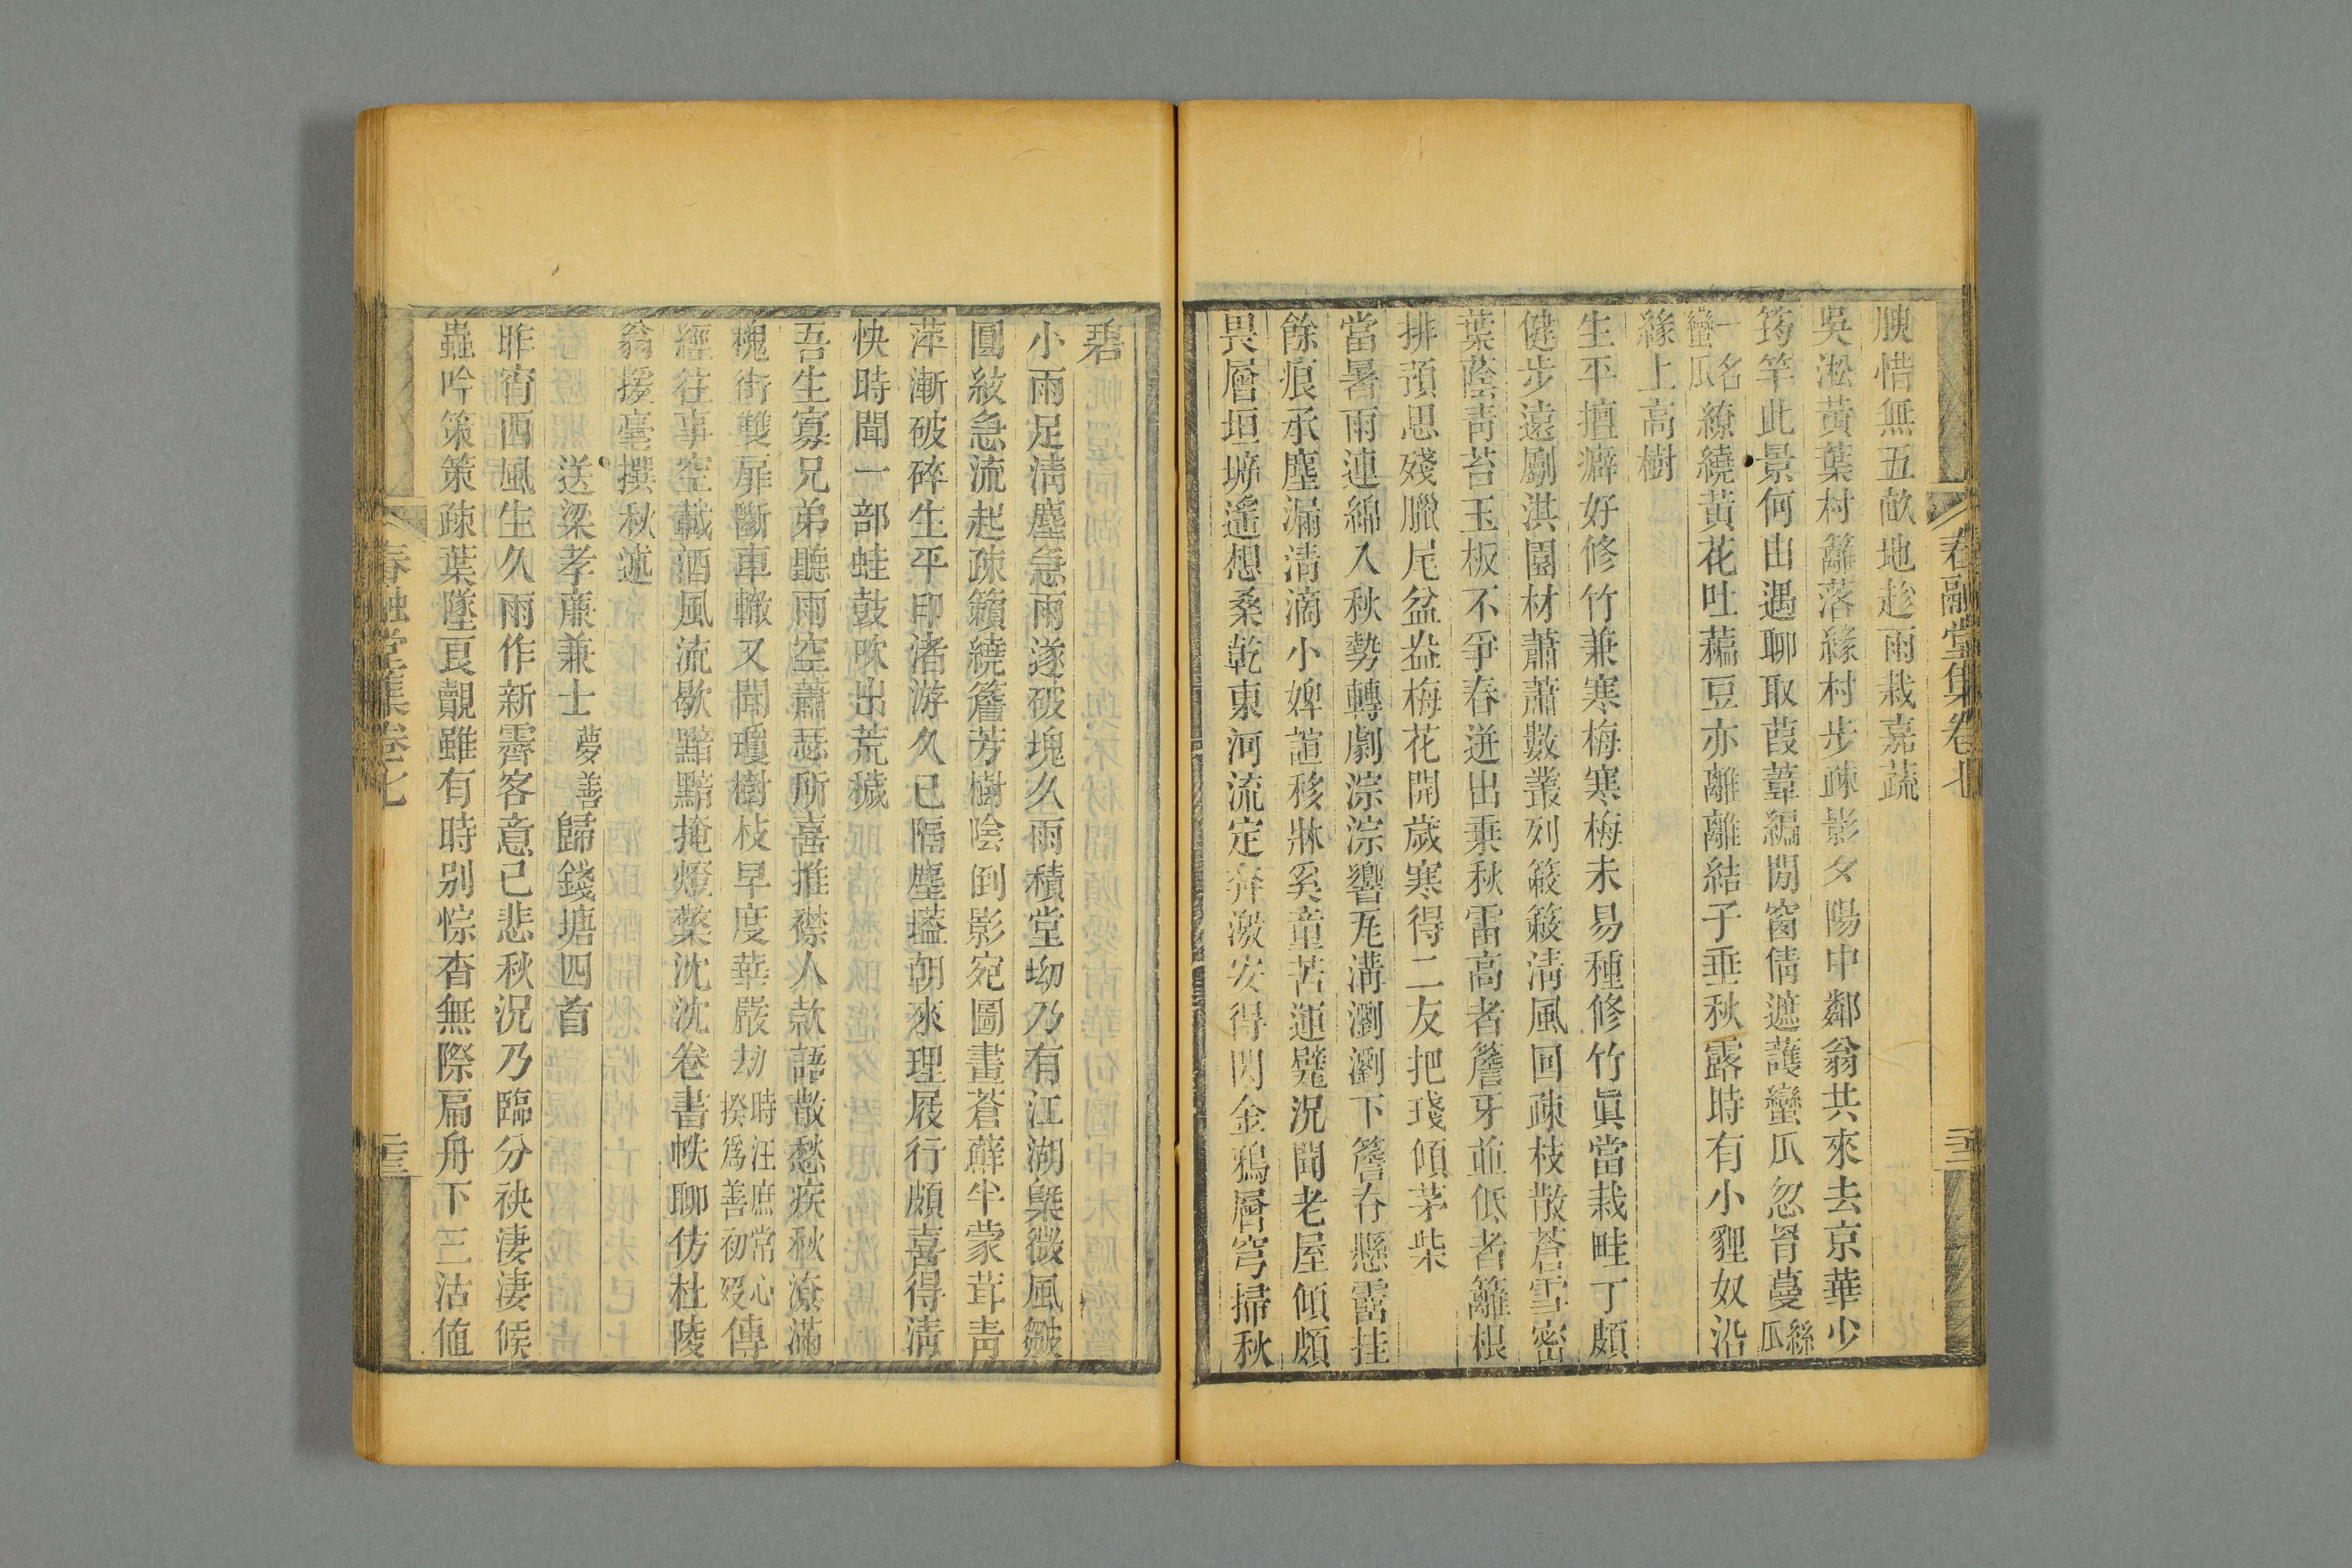 春融堂集卷七
腴惜無五畝地趁雨栽嘉蔬
吳淞黃葉村籬落緣村步疎影夕陽中鄰翁共來去京華少
筠竿此景何由遇聊取葭葦編閒窗倩遮護蠻瓜忽胥蔓絲瓜
一名蠻瓜繚繞黃花吐藊豆亦離離結子垂秋露時有小貍奴沿
緣上高樹
生平擅癖好修竹兼寒梅寒梅未易種修竹眞當栽畦丁頗
健步遠劚淇園材蕭蕭數叢列簌簌淸風回疎枝散蒼雪密
葉蔭靑苔玉板不爭春迸出乗秋雷高者簷牙並低者籬根
排預思殘臘尾盆盎梅花開歲寒得二友把琖傾茅柴
當暑雨連綿入秋勢轉劇淙淙響瓦溝瀏瀏下簷舂懸霤挂
餘痕承塵漏淸滴小婢諠移牀奚童苦運甓況聞老屋傾頗
畏層垣遙想桑乾東河流定奔激安得閃金鴉層穹掃秋
碧
小雨足淸塵急雨遂破塊久雨積堂坳乃有江湖槩微風皺
圓紋急流起疎籟繞簷芳樹陰倒影宛圖畫蒼蘚半蒙茸靑
萍漸破碎生平印渚游久已隔塵壒朝來理屐行頗喜得淸
快時聞一部蛙鼓吹出荒穢
吾生寡兄弟聽雨空蕭瑟所喜推襟人款語散愁疾秋潦滿
槐街雙扉斷車轍又聞瓊樹枝早度華嚴劫時汪庶常心揆爲善初歿傳
經往事空載酒風流歇黯黯掩燈檠沈沈卷書帙聊仿杜陵
翁援毫撰秋述
送梁孝廉兼士夢善歸錢塘四首
昨宵西風生久雨作新霽客意己悲秋況乃臨分袂淒淒候
蟲吟策策疎葉墜良覿雖有時別悰杳無際扁舟下三沽値
春融堂集卷七